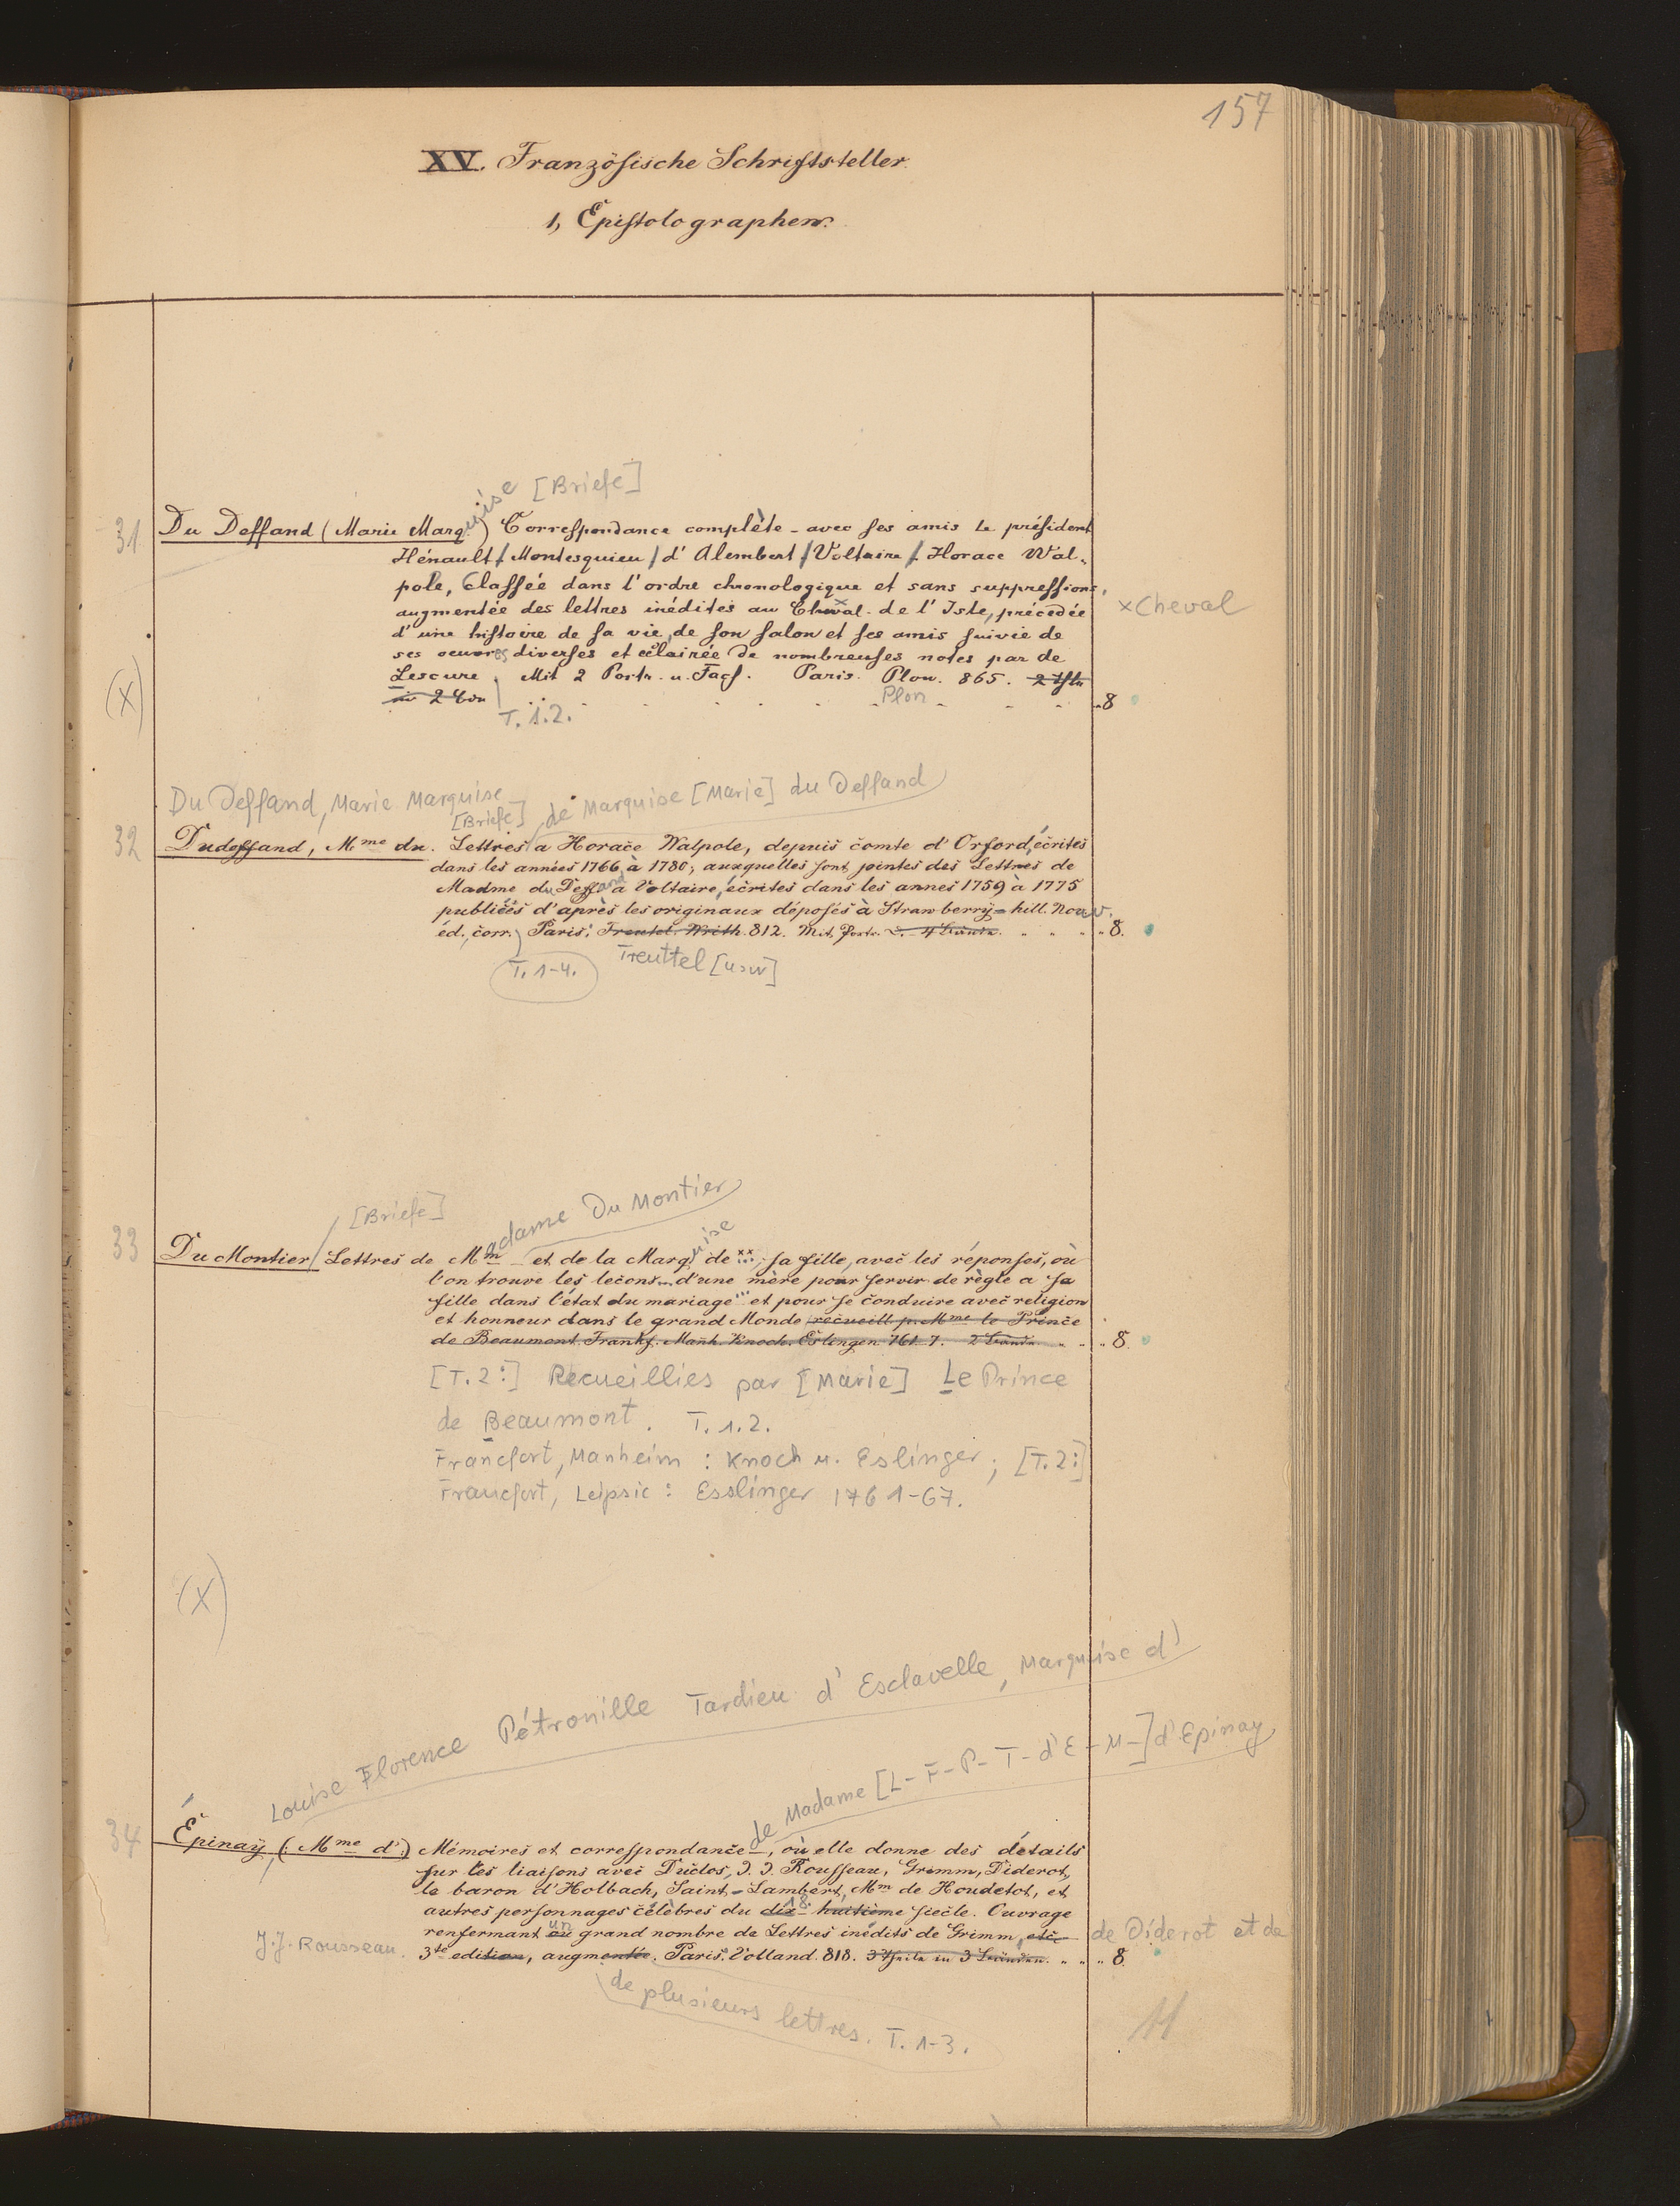 157
XV. Französische Schriftsteller.
1, Epistolographen.
uise [Briefe]
31 Du Deffand (Marie Marq.) Correspondance complète - avec ses amis le président
Hénault / Montesquieu / d'Alembert / Voltaire / Horace Wal-
pole, Classée dans l'ordre chronologique et sans suppressions,
augmentée des lettres inédites au Cheval. de l'Isle, précédée
× Cheval
d'une histoire de sa vie, de son salon et ses amis suivie de
ses oeuvres diverses et éclairée de nombreuses notes par de
Lescure. Mit 2 Portr. u. Facs. Paris. Plon. 865. 2 Thle
in 2 Bdn 8
(X)
T. 1.2. Plon
Du Deffand, Marie Marquise
[Briefe] de Marquise [Marie] du Deffand
32 Dudeffand, Mme du. Lettres a Horace Walpole, depuis comte d'Orford, écrites
dans les années 1766 à 1780; auxquelles sont jointes des Lettres de
Madme du Deffand a Voltaire, écrites dans les annes 1759 à 1775
publiées d'après les originaux déposés à Strawberry-hill. Nouv.
éd., corr. Paris. Treutel. Writh. 812. Mit Portr. 4 Bände. 8.
T. 1-4. Treuttel [usw]
[Briefe] adame Du Montier
uise
33 Du Montier / Lettres de Mm et de la Marq. de ***, sa fille, avec les réponses, où
l'on trouve les leçons d'une mère pour servir de règle a sa
fille dans l'état du mariage et pour se conduire avec religion
et honneur dans le grand Monde recueill p. Mme le Prince
de Beaumont. Frankf. Manh. Knoch. Eslingen. 761-7. 2 Bände. 8.
[T. 2:] Recueillies par [Marie] Le Prince
de Beaumont. T. 1.2.
Francfort, Manheim : Knoch u. Eslinger ; [T. 2:]
Francfort, Leipsic : Esslinger 1761-67.
(X)
Louise Florence Pétronille Tardieu d'Esclavelle, Marquise d'
de Madame [L-F-P-T-d'E-M-] d'Epinay
34 Épinay, (Mme d'.) Mémoires et correspondance, où elle donne des détails
sur les liaisons avec Duclos, J. J. Rousseau, Grimm, Diderot,
le baron d'Holbach, Saint-Lambert, Mm de Houdetot, et
autres personnages célèbres du dix-huitième siècle. Ouvrage
18
renfermant un grand nombre de Lettres inédits de Grimm, etc
de Diderot et de
J. J. Rousseau. 3te edition, augmentée. Paris. Volland. 818. 3 Theile in 3 Bänden. 8.
de plusieurs lettres. T. 1-3.